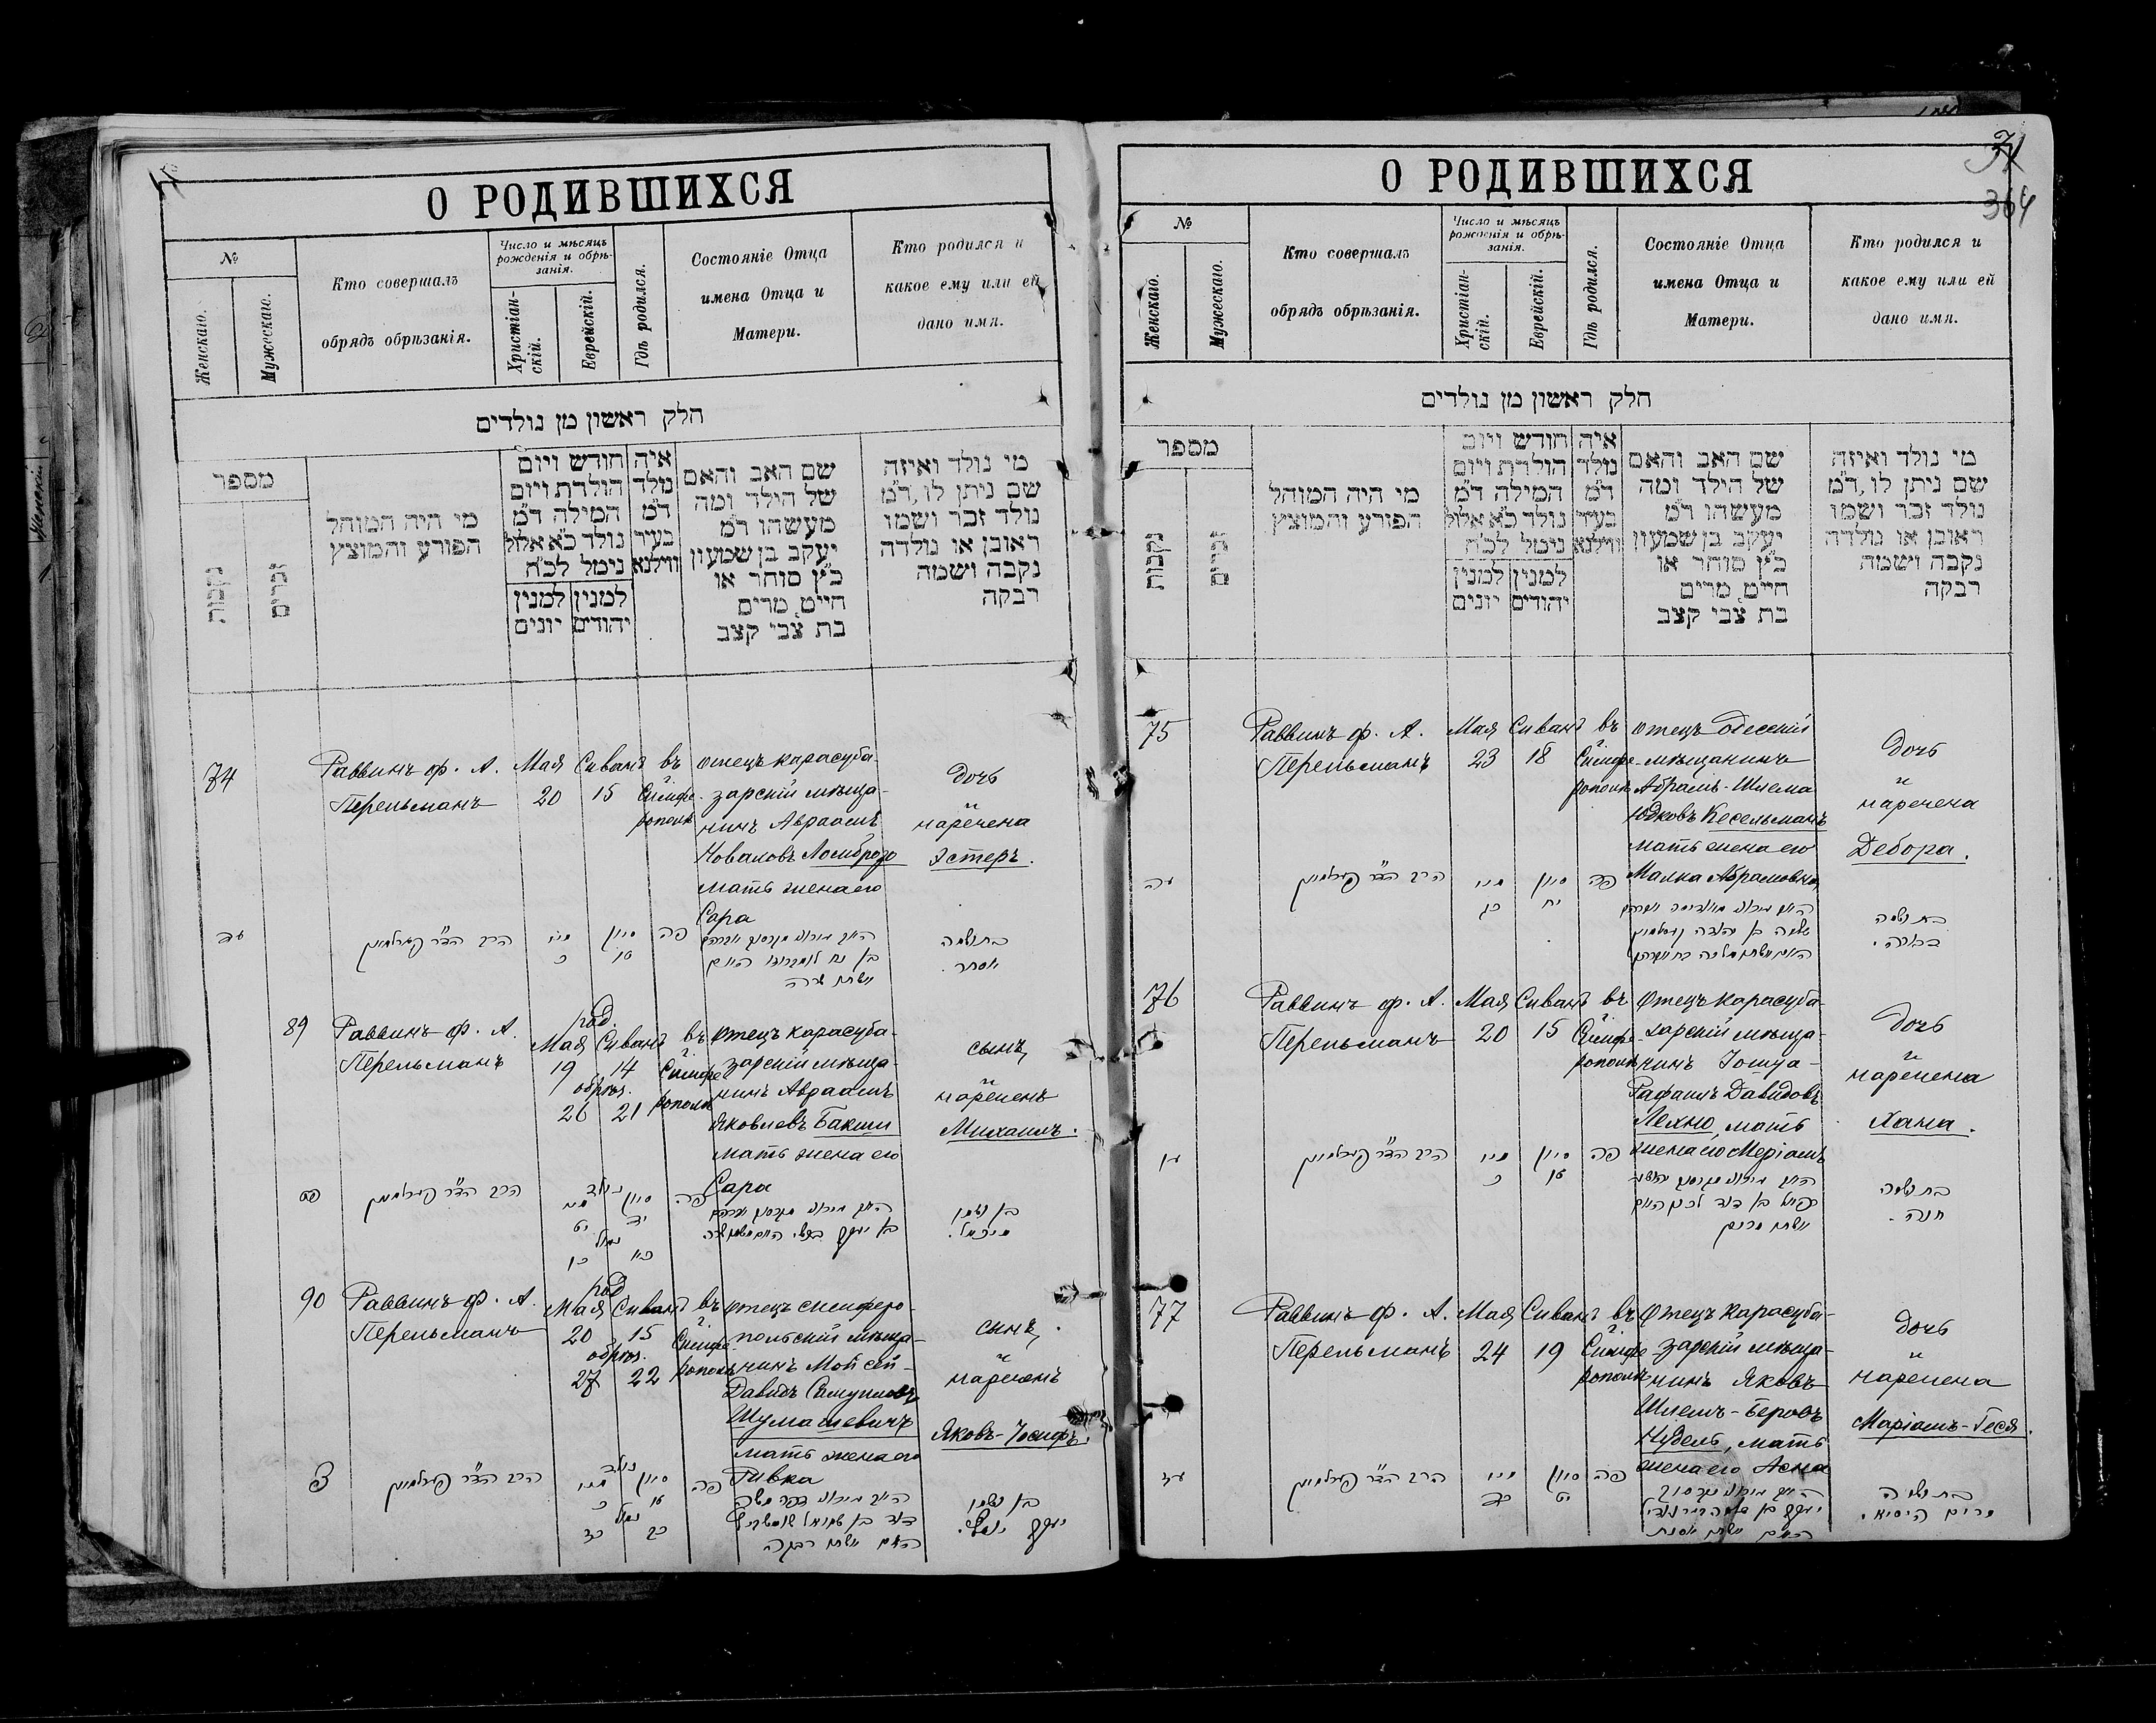 О РОДИВШИХСЯ
№
Женскаго.
Мужескаго.
Кто совершалъ
обрядъ обрѣзанія.
Число и мѣсяцъ
рожденія и обрѣ-
занія.
Христіан-
скій.
Еврейскій.
Гдѣ родился.
Состояніе Отца
имена Отца и
Матери.
Кто родился и
какое ему или ей
дано имя.
חלק ראשון מן נולדים
מספר
נקבות
זכרים
מי היה המוהל
הפורע והמוצץ
חודש ויום
הולדת ויום
המילה ד״מ
נולד כ״א אלול
נימל לכ״ח
למנין
יונים
למנין
יהודים
איה
נולד
ד״מ
בעיר
ווילנא
שם האב והאם
של הילד ומה
מעשהו ד״מ
יעקב בן שמעון
כ״ץ סוחר או
חייט, מרים
בת צבי קצב
מי נולד ואיזה
שם ניתן לו, ד״מ
נולד זכר ושמו
ראובן או נולדה
נקבה ושמה
רבקה
74
Раввинъ ф. А.
Перельманъ
Мая
20
Сиванъ
15
въ
г.
Симфе-
рополѣ
отецъ карасуба-
зарскій мѣща-
нинъ Авраамъ
Новаховъ Ломброзо
мать жена его
Сара
дочь
и
наречена
Эстеръ.
עד
הרב הד״ר פערלמאן
סיון
טו
פה
בת ושמה
אסתר.
89
Раввинъ ф. А.
Перельманъ
род.
Мая Сиванъ
19 14
обрѣз.
26 21
въ
г.
Симфе-
рополѣ
отецъ карасуба-
зарскій мѣща-
нинъ Авраамъ
Яковлевъ Бакши
мать жена его
Сара
сынъ
и
нареченъ
Михаилъ.
פט
הרב הד״ר פערלמאן
נולד
סיון
יד
יט
נמול
פה
בן ושמו
מיכאל.
90
Раввинъ ф. А.
Перельманъ
род.
Мая Сиванъ
20 15
обрѣз.
27 22
въ
г.
Симфе-
рополѣ
отецъ симферо-
польскій мѣща-
нинъ Мойсей-
Давидъ Самуиловъ
Шумашевичъ
мать жена его
Ривка
сынъ
и
нареченъ
Яковъ-Іосифъ.
הרב הד״ר פערלמאן
נולד
סיון
טו
כ
נמול
פה
האם אשתו רבקה
בן ושמו
יעקב יוסף.
О РОДИВШИХСЯ
71
364
№
Женскаго.
Мужескаго.
Кто совершалъ
обрядъ обрѣзанія.
Число и мѣсяцъ
рожденія и обрѣ-
занія.
Христіан-
скій.
Еврейскій.
Гдѣ родился.
Состояніе Отца
имена Отца и
Матери.
Кто родился и
какое ему или ей
дано имя.
חלק ראשון מן נולדים
מספר
נקבות
זכרים
מי היה המוהל
הפורע והמוצץ
חודש ויום
הולדת ויום
המילה ד״מ
נולד כ״א אלול
נימל לכ״ח
למנין
יונים
למנין
יהודים
איה
נולד
ד״מ
בעיר
ווילנא
שם האב והאם
של הילד ומה
מעשהו ד״מ
יעקב בן שמעון
כ״ץ סוחר או
חייט, מרים
בת צבי קצב
מי נולד ואיזה
שם ניתן לו, ד״מ
נולד זכר ושמו
ראובן או נולדה
נקבה ושמה
רבקה
75
Раввинъ ф. А.
Перельманъ
Мая
23
Сиванъ
18
въ
г.
Симфе-
рополѣ
отецъ Одесскій
мѣщанинъ
Абрамъ-Шлема
Юдковъ Кесельманъ
мать жена его
Малка Абрамовна
дочь
и
наречена
Дебора.
עה
הרב הד״ר פערלמאן
סיון
יח
פה
בת ושמה
76
Раввинъ ф. А.
Перельманъ
Мая
20
Сиванъ
15
въ
г.
Симфе-
рополѣ
Отецъ карасуба-
зарскій мѣща-
нинъ Іошуа-
Рафаилъ Давидовъ
Лехно, мать
жена его Меріамъ
дочь
и
наречена
Хана.
הרב הד״ר פערלמאן
סיון
טו
פה
אשתו מרים
בת ושמה
חנה.
77
Раввинъ ф. А.
Перельманъ
Мая
24
Сиванъ
19
въ
г.
Симфе-
рополѣ
Отецъ карасуба-
зарскій мѣща-
нинъ Яковъ
Шлемъ-Беровъ
Нудель, мать
жена его Асна
дочь
и
наречена
Маріамъ-Геся.
עז
הרב הד״ר פערלמאן
סיון
יט
פה
האם אשתו אסנת
בת ושמה
מרים היסיא.